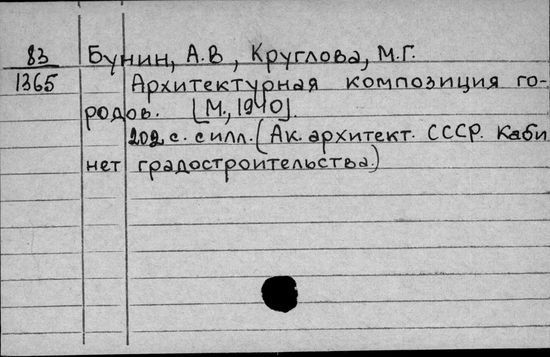 83 Бунин, А.В., Круглова, М.Г.
1365 Архитектурная композиция го-
родов. [М., 1940].
202 с. с илл. (Ак. архитект. СССР. Каби
нет градостроительства.)